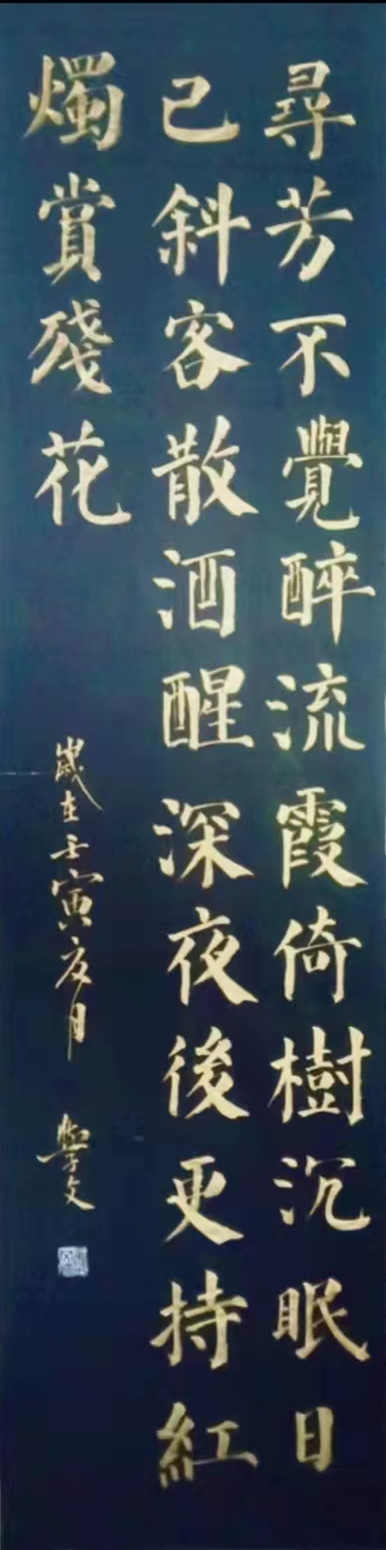 尋芳不覺醉流霞倚樹沉眠日
已斜客散酒醒深夜後更持紅
燭賞殘花
歲在壬寅夏月 學文